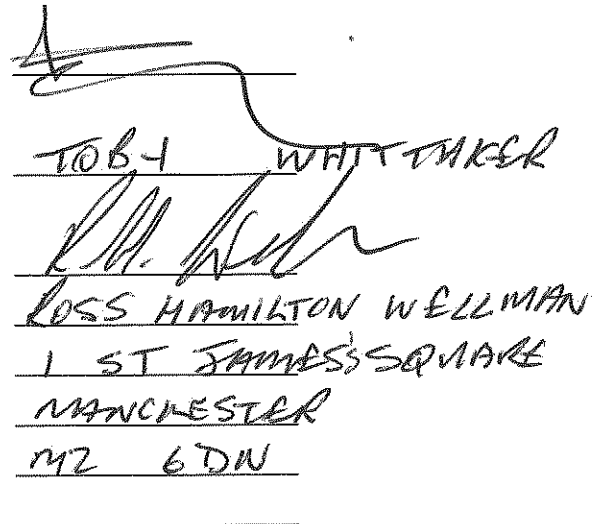 TOBY WHITTAKER
ROSS HAMILTON WELLMAN
1 ST JAMES'S SQUARE
MANCHESTER
M2 6DN